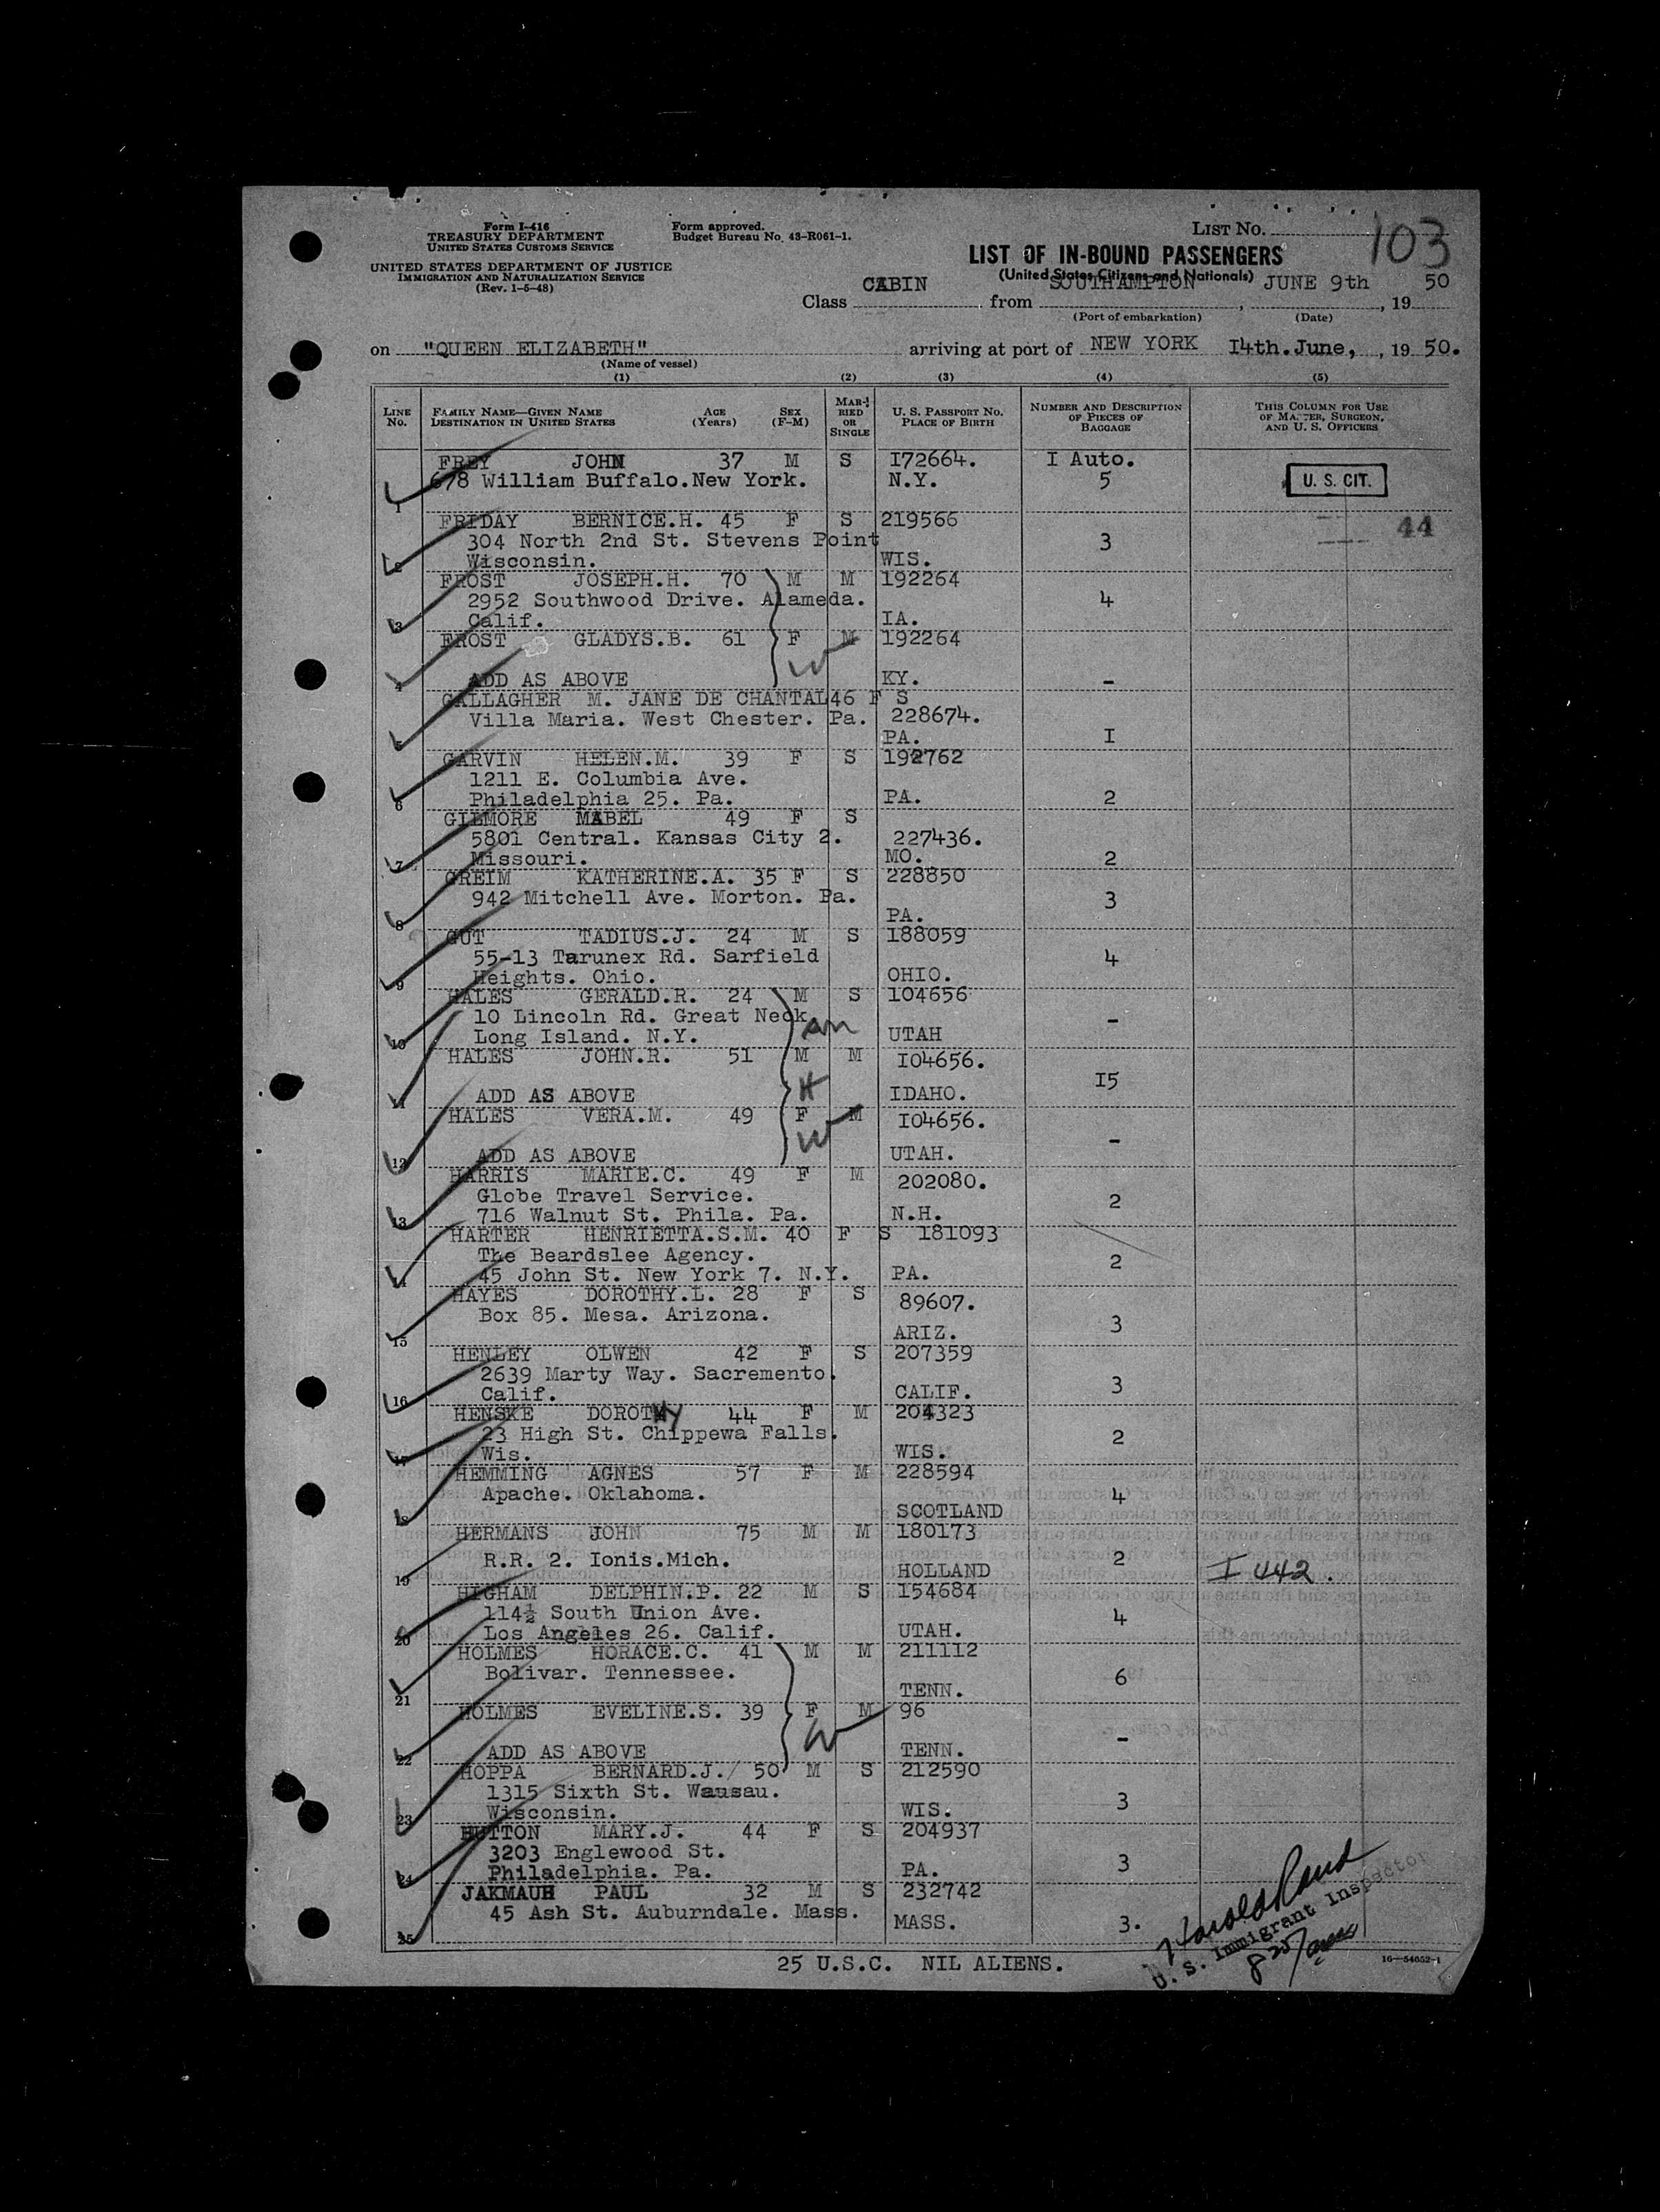 Form I-416
TREASURY DEPARTMENT
UNITED STATES CUSTOMS SERVICE
UNITED STATES DEPARTMENT OF JUSTICE
IMMIGRATION AND NATURALIZATION SERVICE
(Rev. 1-5-48)
Form approved.
Budget Bureau No. 43-R061-1.
LIST No. 103
LIST OF IN-BOUND PASSENGERS
(United States Citizens and Nationals)
Class CABIN from SOUTHAMPTON, JUNE 9th, 19 50
(Port of embarkation) (Date)
on "QUEEN ELIZABETH" arriving at port of NEW YORK 14th.June, , 19 50.
(Name of vessel)
(1) (2) (3) (4) (5)
LINE No. FAMILY NAME—GIVEN NAME DESTINATION IN UNITED STATES AGE (Years) SEX (F-M) MARRIED OR SINGLE U. S. PASSPORT NO. PLACE OF BIRTH NUMBER AND DESCRIPTION OF PIECES OF BAGGAGE THIS COLUMN FOR USE OF MASTER, SURGEON, AND U. S. OFFICERS
FREY JOHN 37 M S I72664. I Auto.
678 William Buffalo.New York. N.Y. 5 U. S. CIT.
1
FRIDAY BERNICE.H. 45 F S 219566 44
304 North 2nd St. Stevens Point 3
2 Wisconsin. WIS.
FROST JOSEPH.H. 70 M M 192264
2952 Southwood Drive. Alameda. 4
3 Calif. IA.
FROST GLADYS.B. 61 F M 192264
W
4 ADD AS ABOVE KY. -
GALLAGHER M. JANE DE CHANTAL 46 F S
Villa Maria. West Chester. Pa. 228674.
5 PA. I
GARVIN HELEN.M. 39 F S 192762
1211 E. Columbia Ave.
6 Philadelphia 25. Pa. PA. 2
GILMORE MABEL 49 F S
5801 Central. Kansas City 2. 227436.
7 Missouri. MO. 2
GREIM KATHERINE.A. 35 F S 228850
942 Mitchell Ave. Morton. Pa. 3
8 PA.
GUT TADIUS.J. 24 M S 188059
55-13 Tarunex Rd. Sarfield 4
9 Heights. Ohio. OHIO.
HALES GERALD.R. 24 M S 104656
10 Lincoln Rd. Great Neck -
10 Long Island. N.Y. UTAH
HALES JOHN.R. 51 M M I04656.
H I5
11 ADD AS ABOVE IDAHO.
HALES VERA.M. 49 F M I04656.
W -
12 ADD AS ABOVE UTAH.
HARRIS MARIE.C. 49 F M 202080.
Globe Travel Service. 2
13 716 Walnut St. Phila. Pa. N.H.
HARTER HENRIETTA.S.M. 40 F S 181093
The Beardslee Agency. 2
14 45 John St. New York 7. N.Y. PA.
HAYES DOROTHY.L. 28 F S 89607.
Box 85. Mesa. Arizona. 3
15 ARIZ.
HENLEY OLWEN 42 F S 207359
2639 Marty Way. Sacremento. 3
16 Calif. CALIF.
HENSKE DOROTHY 44 F M 204323
23 High St. Chippewa Falls. 2
17 Wis. WIS.
HEMMING AGNES 57 F M 228594
Apache. Oklahoma. 4
18 SCOTLAND
HERMANS JOHN 75 M M 180173
R.R. 2. Ionis.Mich. 2
19 HOLLAND I 442.
HIGHAM DELPHIN.P. 22 M S 154684
114½ South Union Ave. 4
20 Los Angeles 26. Calif. UTAH.
HOLMES HORACE.C. 41 M M 211112
Bolivar. Tennessee. 6
21 TENN.
HOLMES EVELINE.S. 39 F M 96
W -
22 ADD AS ABOVE TENN.
HOPPA BERNARD.J. 50 M S 212590
1315 Sixth St. Wausau. 3
23 Wisconsin. WIS.
HUTTON MARY.J. 44 F S 204937
3203 Englewood St. 3
24 Philadelphia. Pa. PA.
JAKMAUH PAUL 32 M S 232742
45 Ash St. Auburndale. Mass. MASS. 3.
25
Harold Rand
U. S. Immigrant Inspector
25 U.S.C. NIL ALIENS.
16—54652-1